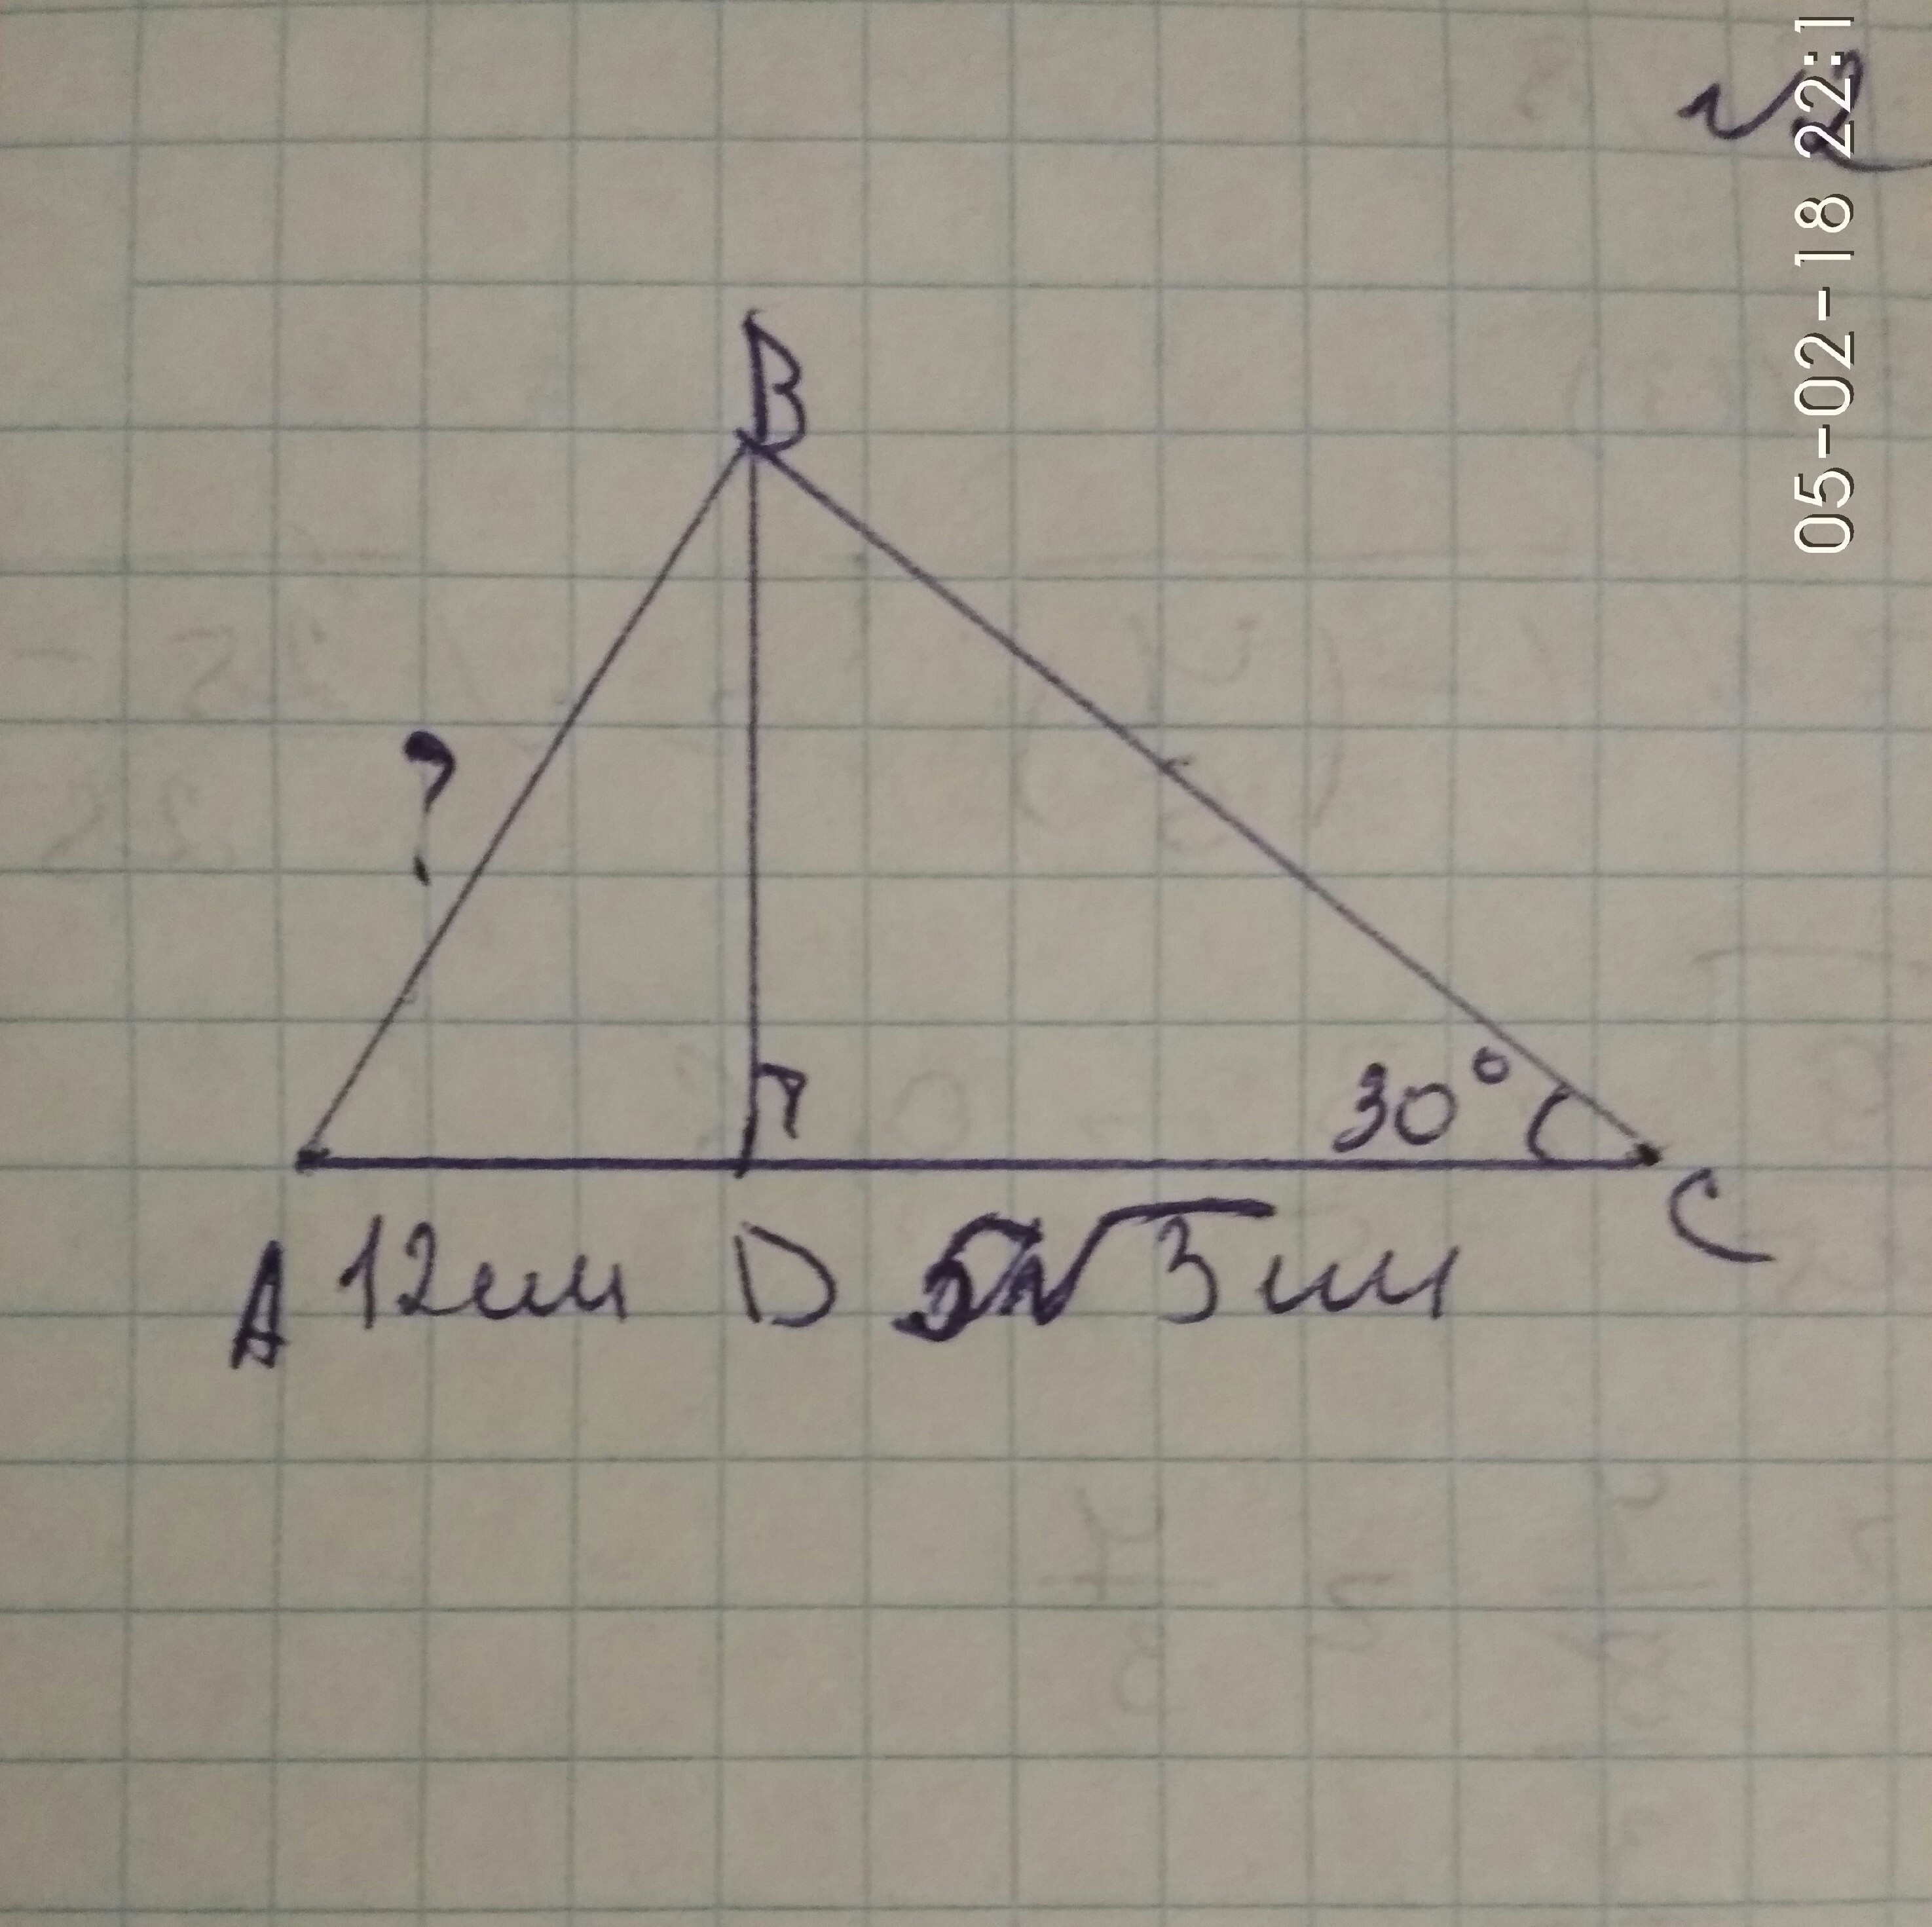 B
?
30°
A 12см D 5√3 см C
05-02-18 22:1